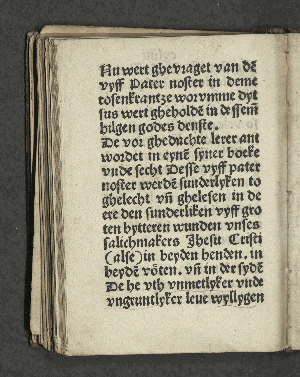 Nu wert ghevraget van dē
vyff Pater noster in deme
rosenkrantze worvmme dyt
sus wert gheholdē in dessem
hilgen godes denste.
De vor ghedachte lerer ant
wordet in eynē syner boeke
vnde secht Desse vyff pater
noster werdē sunderlyken to
ghelecht vn̄ ghelesen in de
ere den sunderliken vyff gro
ten bytteren wunden vnses
salichmakers Jhesu Cristi
(alse) in beyden henden. in
beydē vōten. vn̄ in der sydē
De he vth vnmetlyker vnde
vngruntlyker leue wyllygen